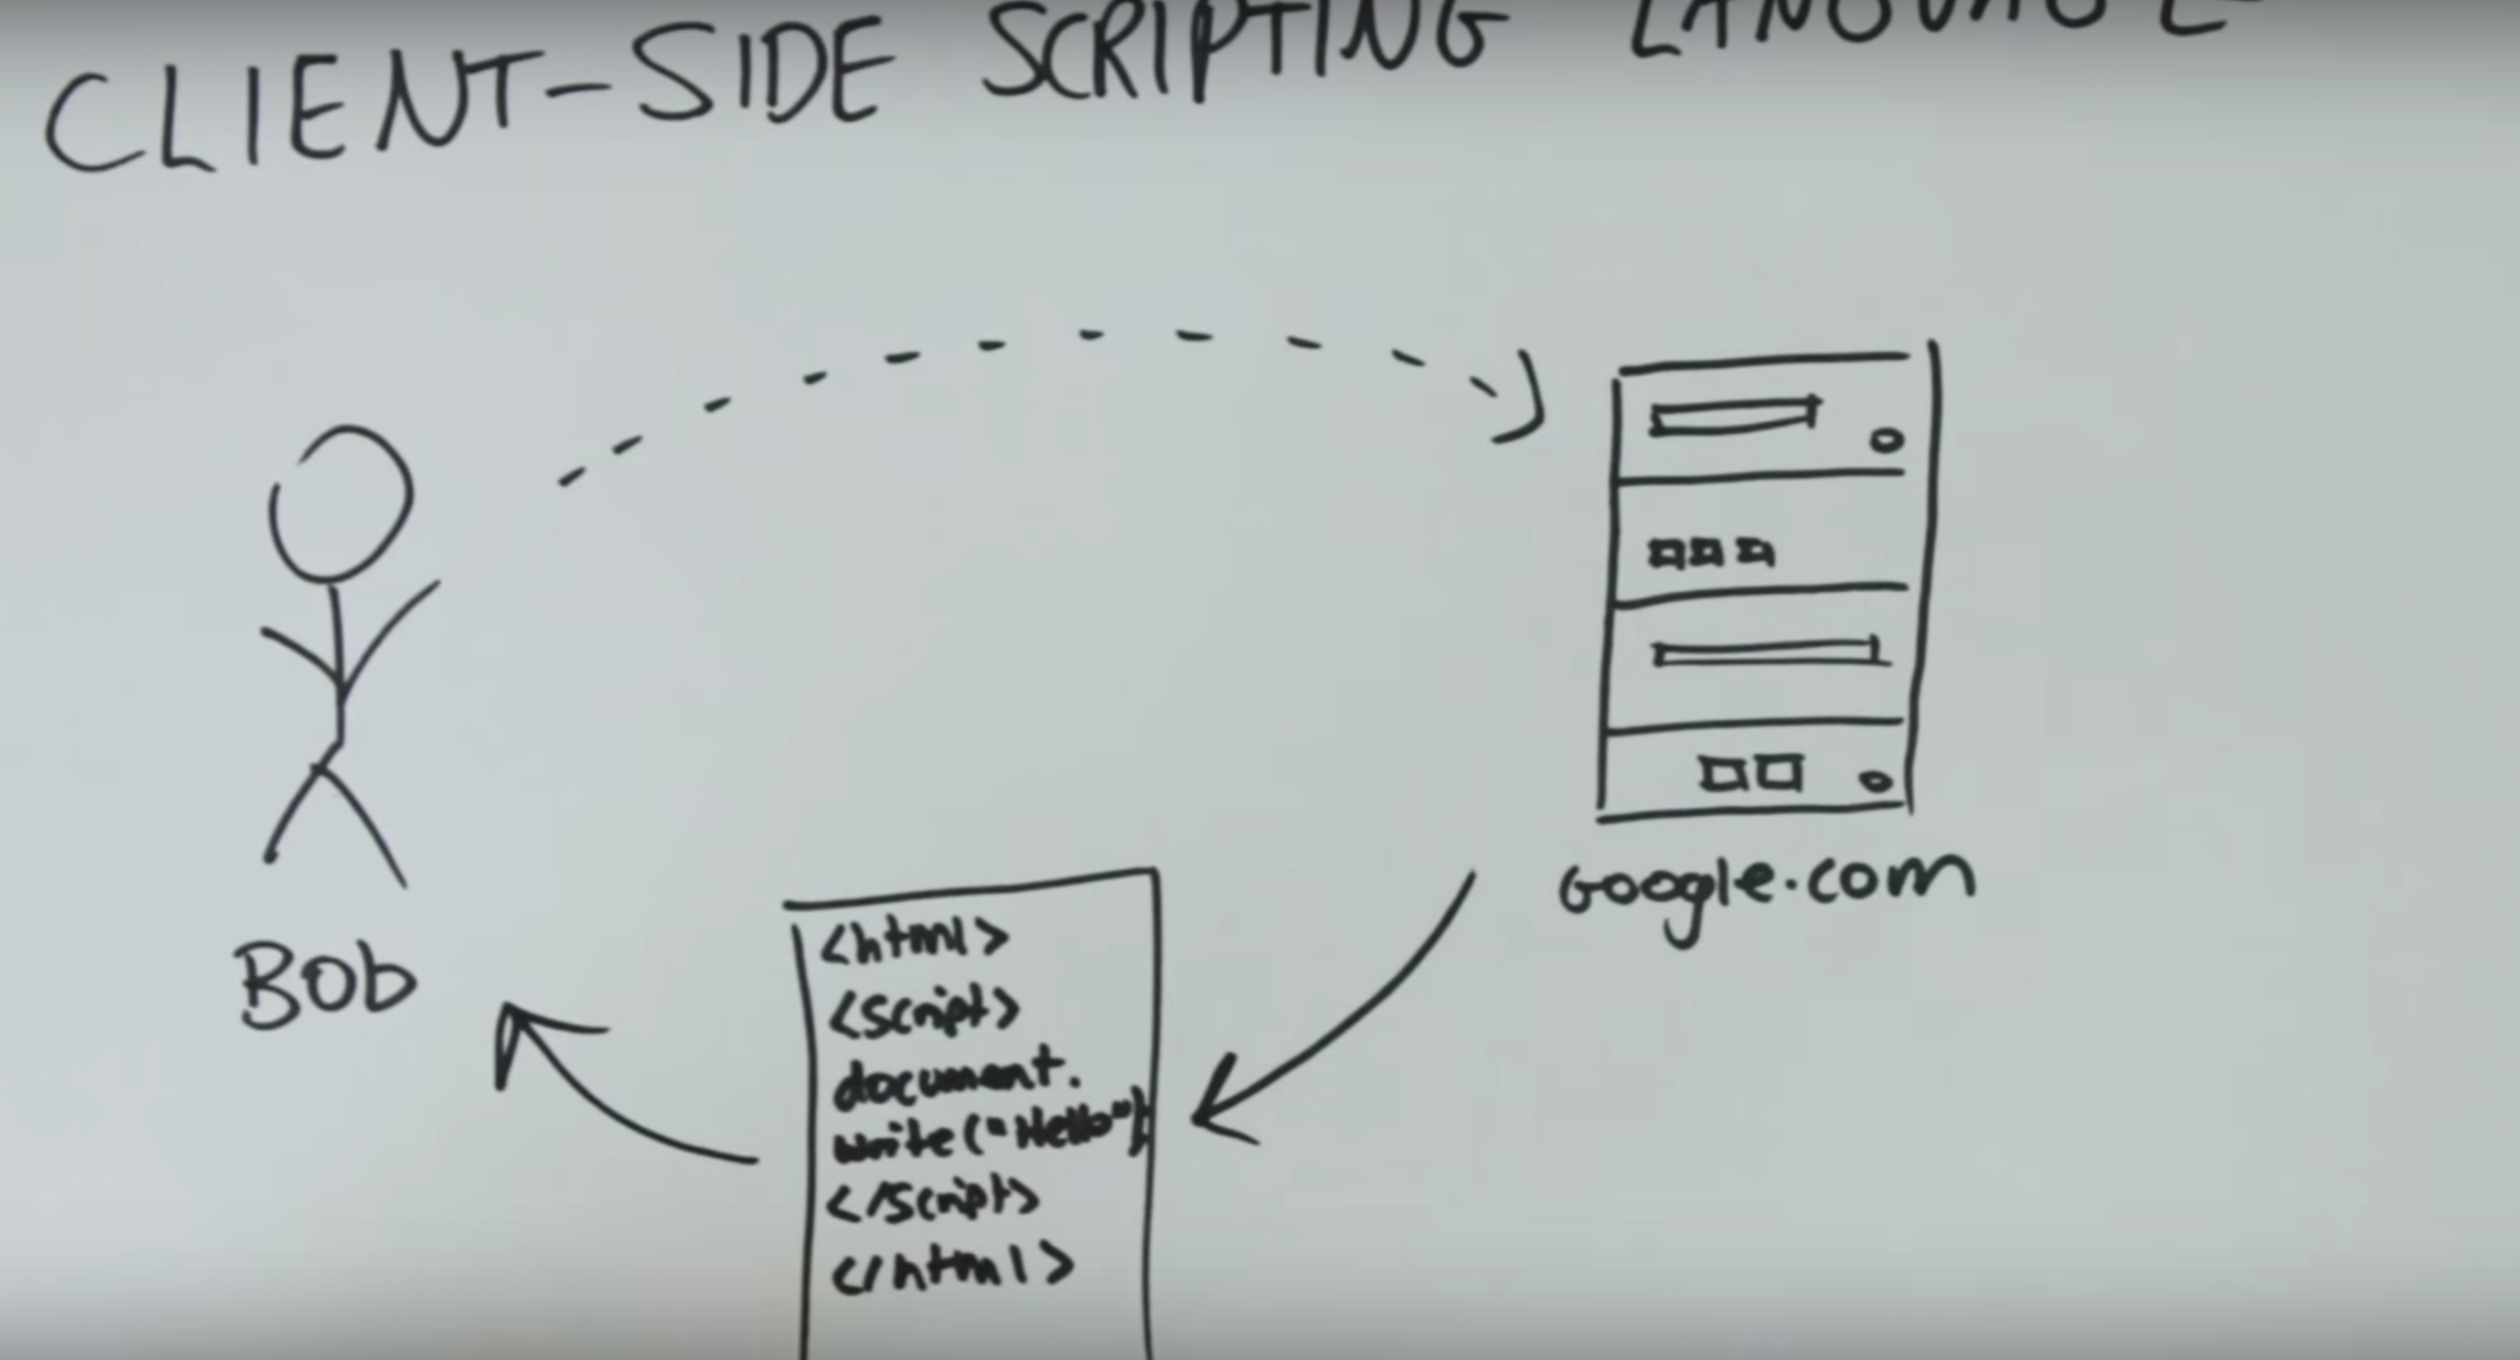 CLIENT-SIDE SCRIPTING LANGUAGE
Google.com
Bob
<html>
<script>
document.
write("Hello")
</script>
</html>